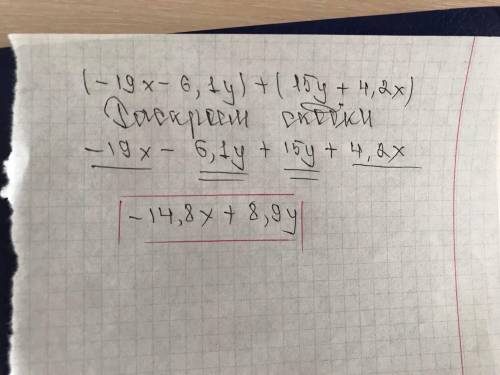 (-19x - 6,1y) + (15y + 4,2x)
Раскроем скобки
-19x - 6,1y + 15y + 4,2x
-14,8x + 8,9y